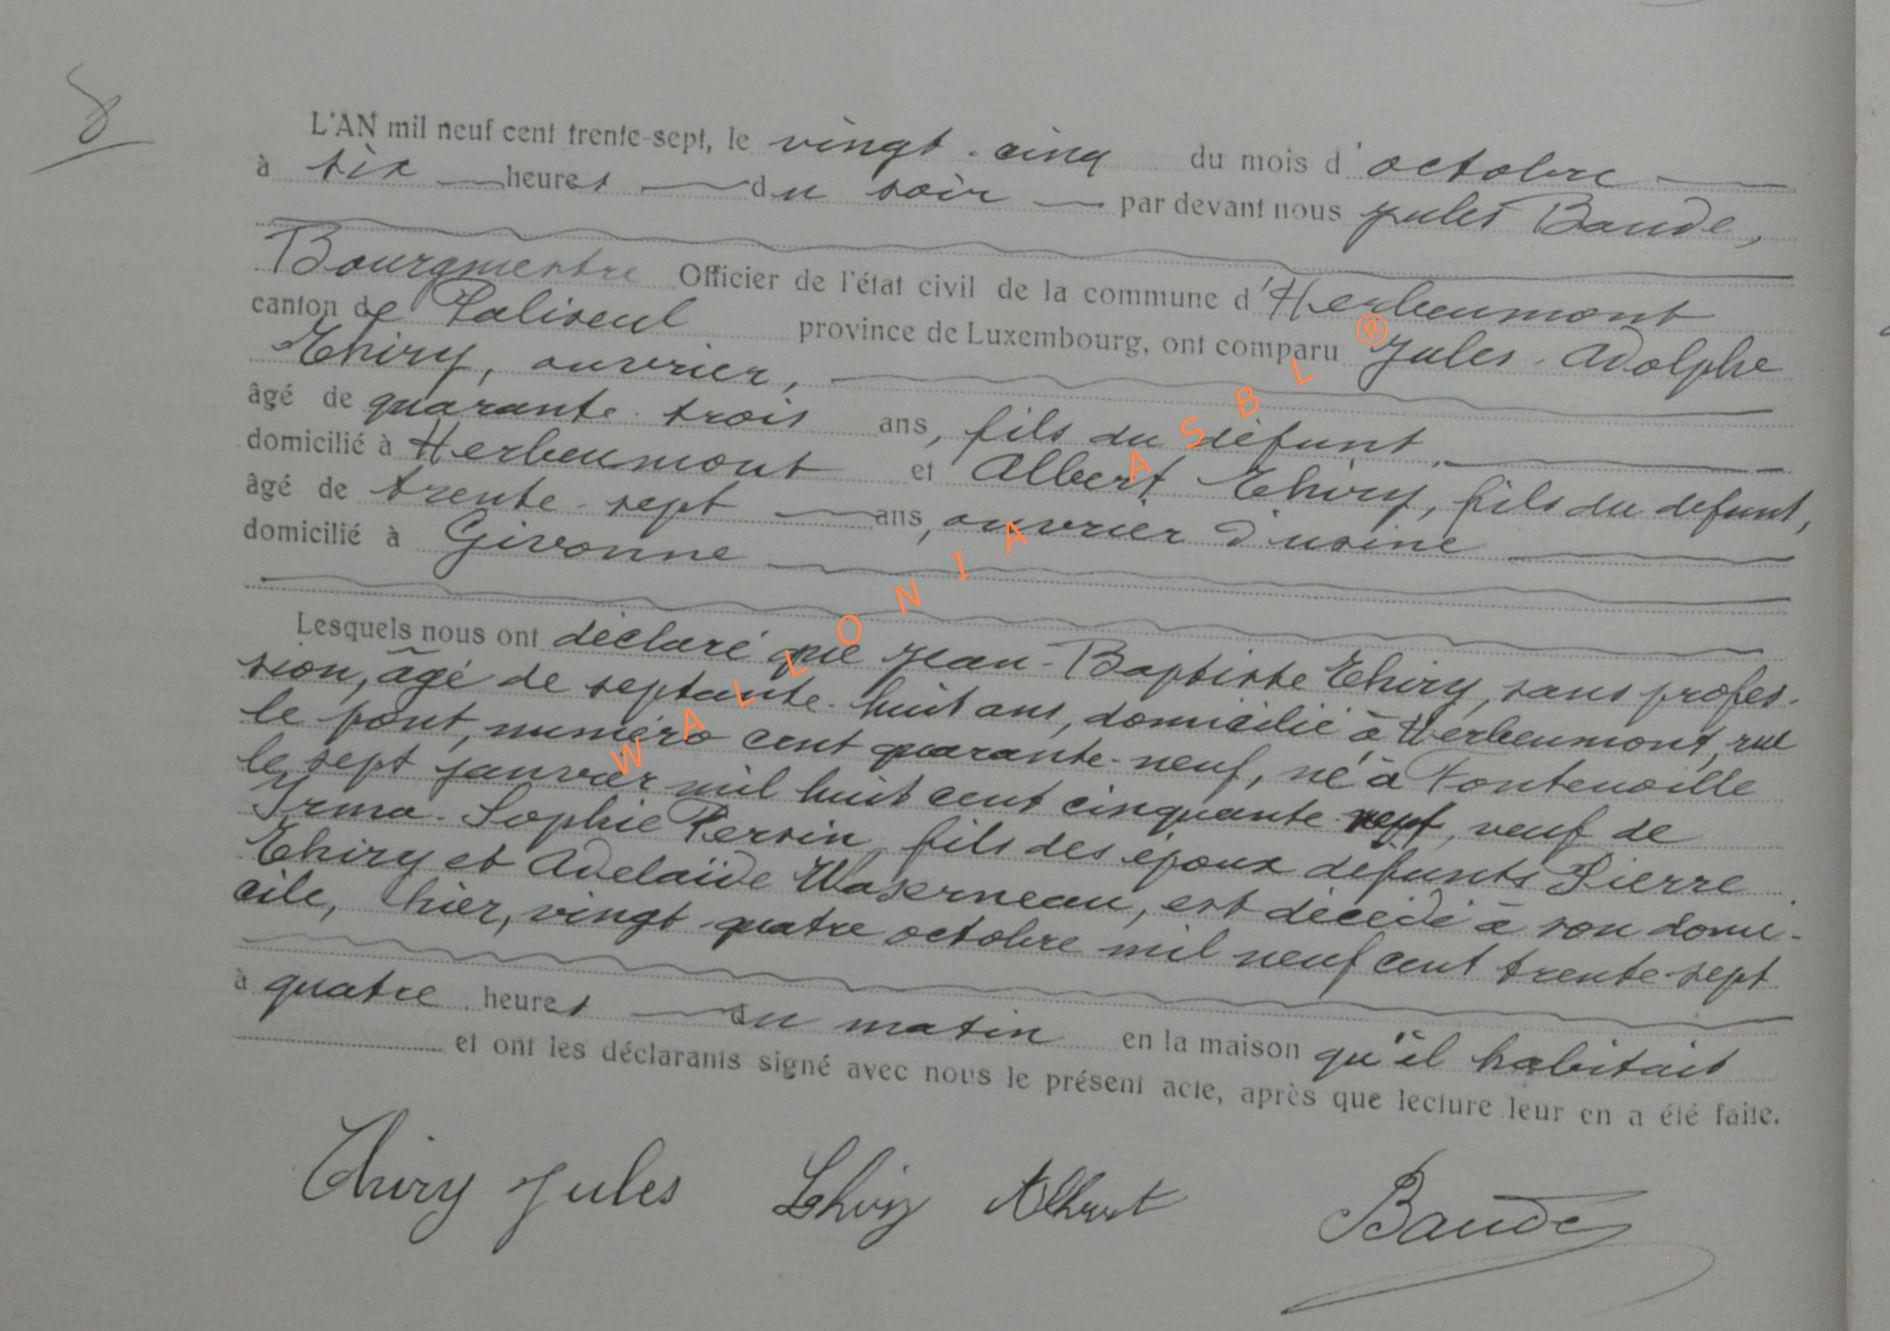 8
L'AN mil neuf cent trente-sept, le vingt-cinq du mois d'octobre
à six heures du soir par devant nous Jules Baude,
Bourgmestre Officier de l'état civil de la commune d'Herbeumont
canton de Paliseul province de Luxembourg, ont comparu Jules-Adolphe
Thiry, ouvrier,
âgé de quarante-trois ans, fils du défunt,
domicilié à Herbeumont et Albert Thiry, fils du défunt,
âgé de trente-sept ans, ouvrier d'usine
domicilié à Givonne
Lesquels nous ont déclaré que Jean-Baptiste Thiry, sans profes-
sion, âgé de septante-huit ans, domicilié à Herbeumont, rue
le pont, numéro cent quarante-neuf, né à Fontenoille
le sept janvier mil huit cent cinquante-neuf, veuf de
Irma-Sophie Persin, fils des époux défunts Pierre
Thiry et Adelaïde Waserneau, est décédé à son domi-
cile, hier, vingt-quatre octobre mil neuf cent trente-sept
à quatre heures du matin en la maison qu'il habitait
et ont les déclarants signé avec nous le présent acte, après que lecture leur en a été faite.
Thiry Jules Thiry Albert Baude
WALLONIA ASBL ®